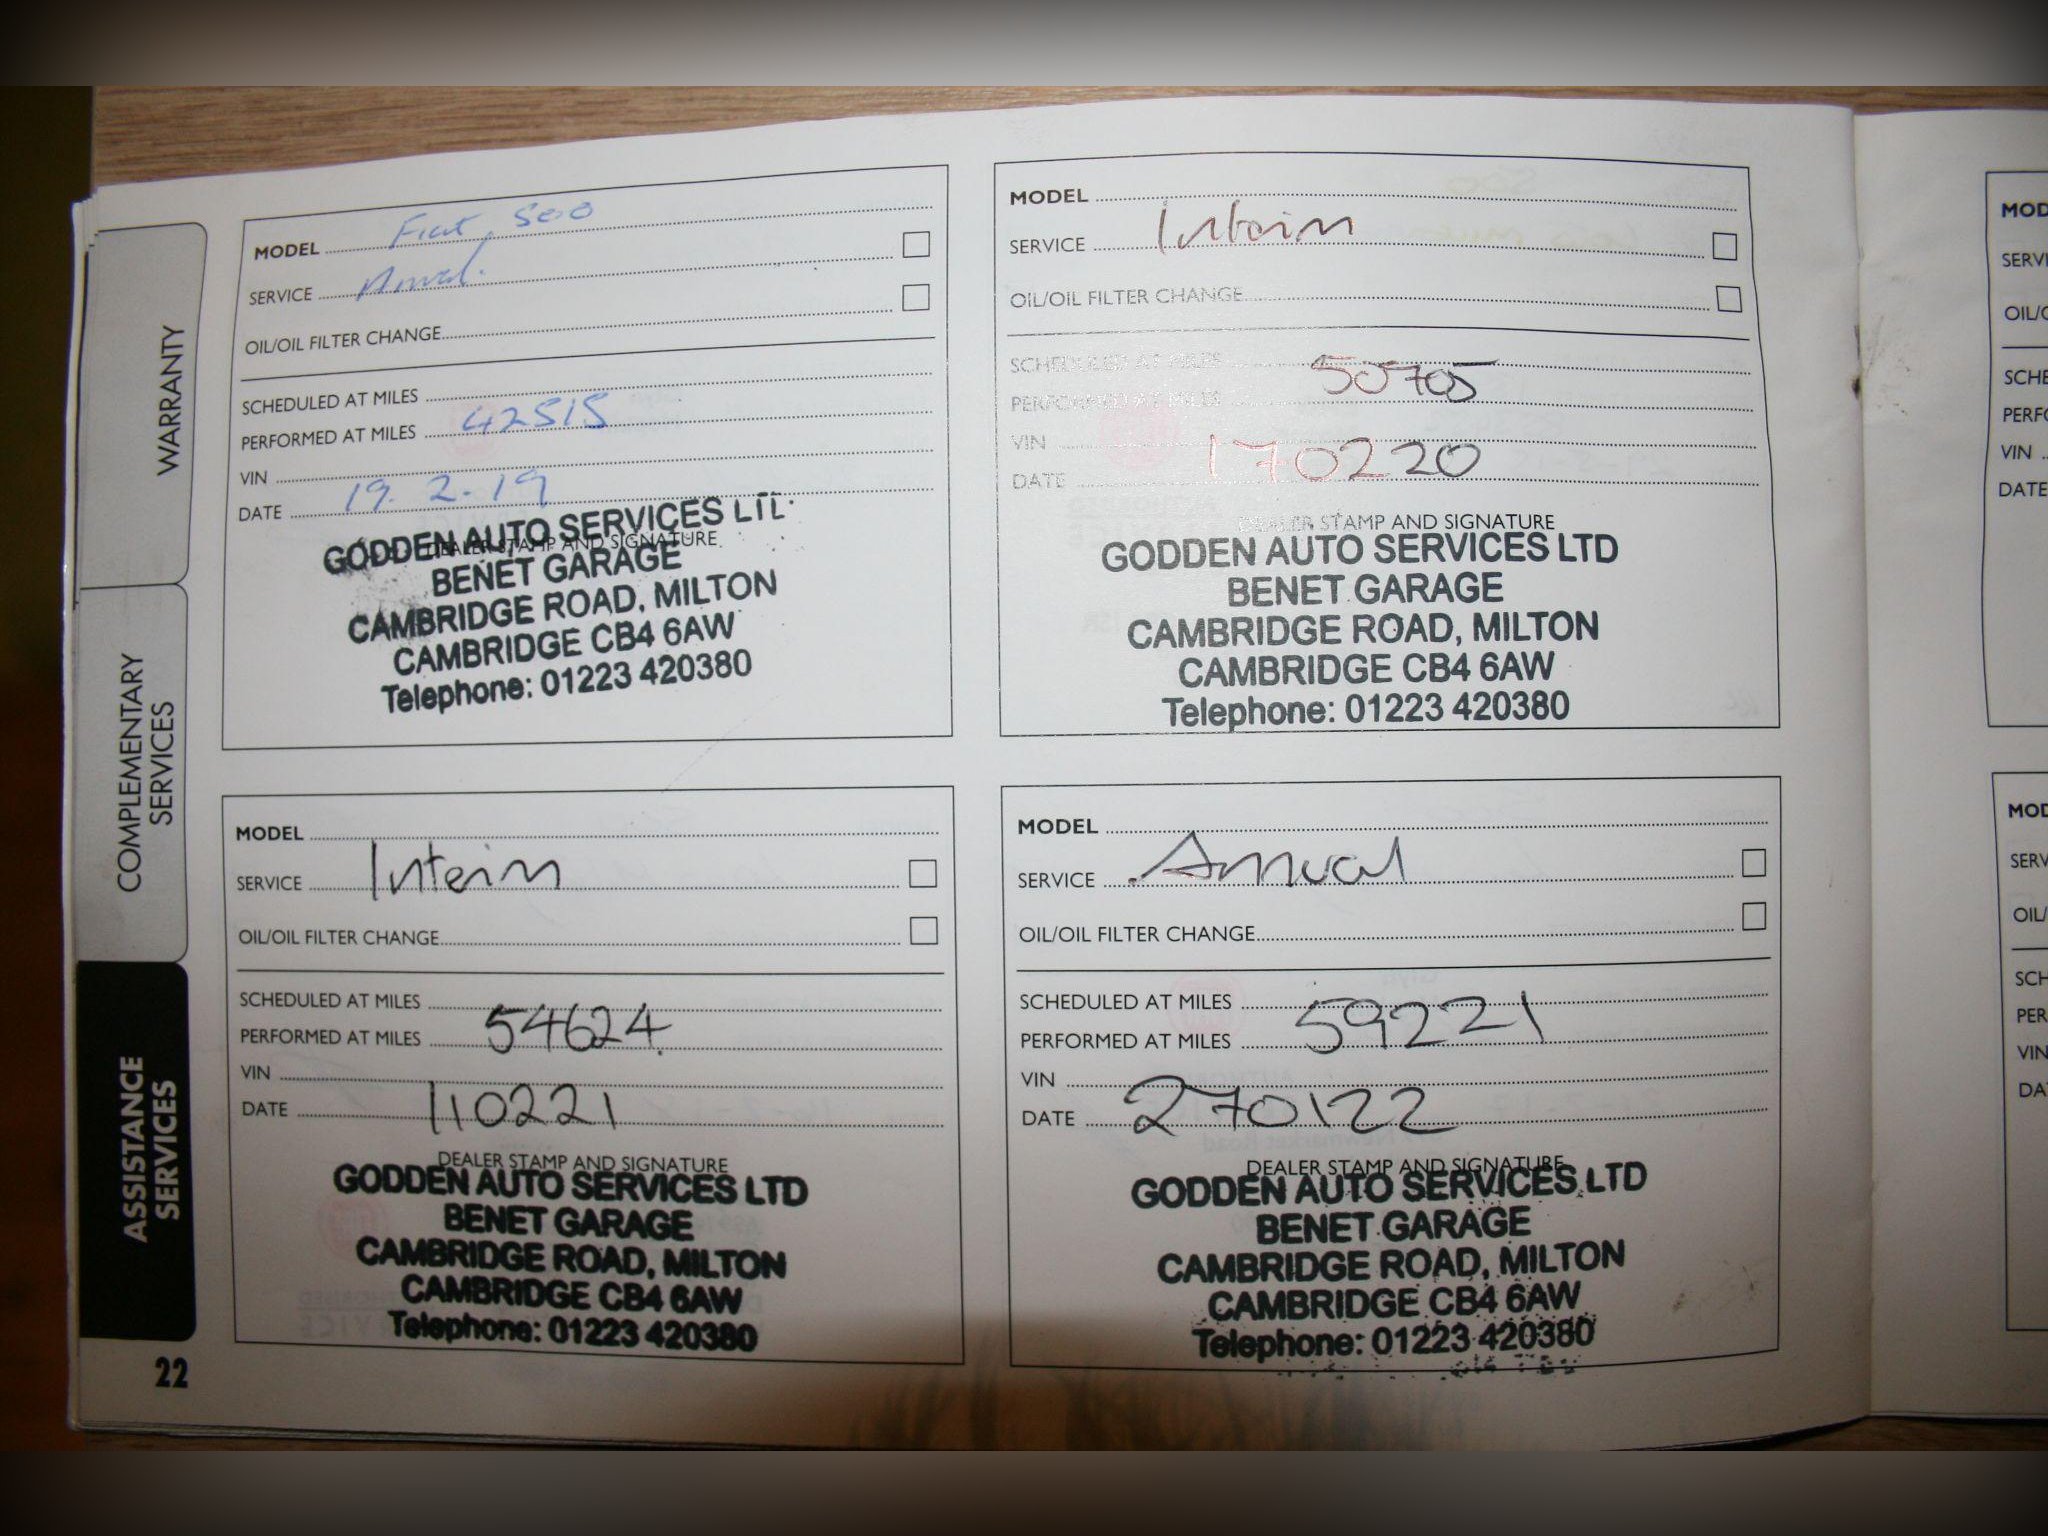 WARRANTY
COMPLEMENTARY
SERVICES
ASSISTANCE
SERVICES
22
MODEL Fiat 500
SERVICE Annual
OIL/OIL FILTER CHANGE
SCHEDULED AT MILES
PERFORMED AT MILES 42515
VIN
DATE 19.2.19
DEALER STAMP AND SIGNATURE
GODDEN AUTO SERVICES LTD
BENET GARAGE
CAMBRIDGE ROAD, MILTON
CAMBRIDGE CB4 6AW
Telephone: 01223 420380
MODEL
SERVICE Interim
OIL/OIL FILTER CHANGE
SCHEDULED AT MILES
PERFORMED AT MILES 50705
VIN
DATE 170220
DEALER STAMP AND SIGNATURE
GODDEN AUTO SERVICES LTD
BENET GARAGE
CAMBRIDGE ROAD, MILTON
CAMBRIDGE CB4 6AW
Telephone: 01223 420380
MODEL
SERVICE Interim
OIL/OIL FILTER CHANGE
SCHEDULED AT MILES
PERFORMED AT MILES 54624
VIN
DATE 110221
DEALER STAMP AND SIGNATURE
GODDEN AUTO SERVICES LTD
BENET GARAGE
CAMBRIDGE ROAD, MILTON
CAMBRIDGE CB4 6AW
Telephone: 01223 420380
MODEL
SERVICE Annual
OIL/OIL FILTER CHANGE
SCHEDULED AT MILES
PERFORMED AT MILES 59221
VIN
DATE 270122
DEALER STAMP AND SIGNATURE
GODDEN AUTO SERVICES LTD
BENET GARAGE
CAMBRIDGE ROAD, MILTON
CAMBRIDGE CB4 6AW
Telephone: 01223 420380
MOD
SERVI
OIL/O
SCHE
PERFO
VIN
DATE
MOD
SERV
OIL/
SCH
PER
VIN
DA